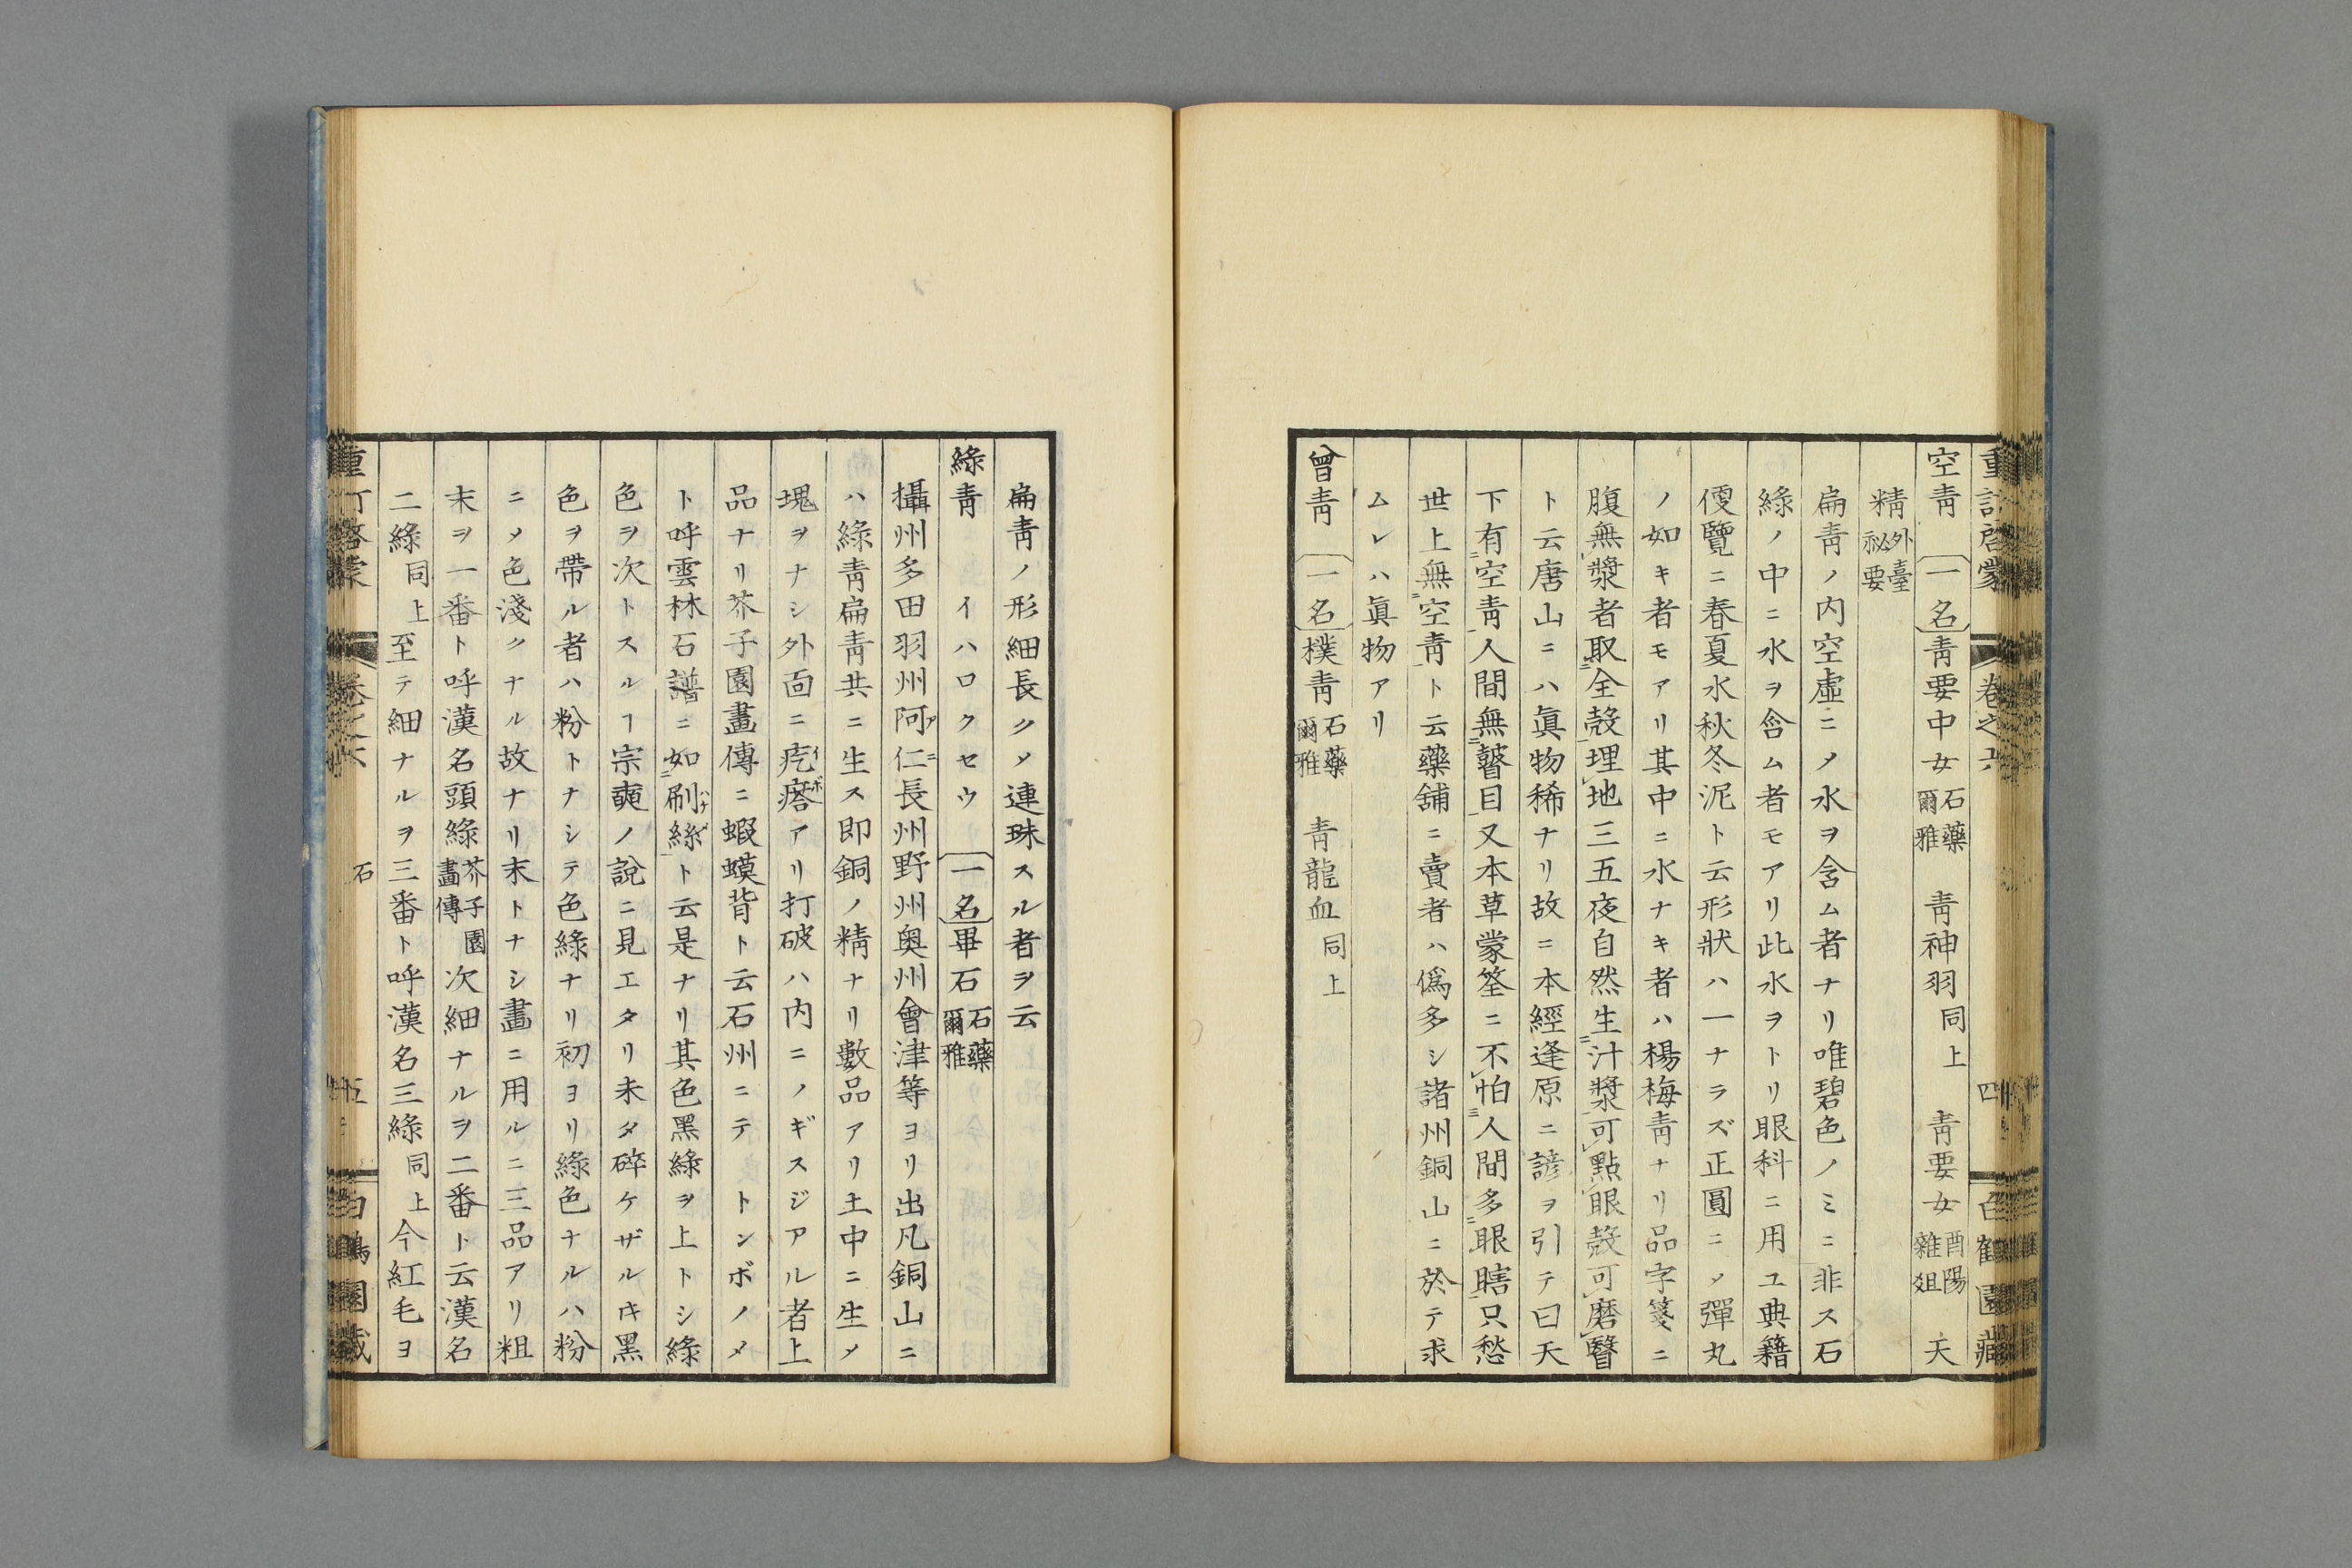 空靑 一名 靑要中女 石藥爾雅 靑神羽 同上 靑要女 酉陽雜爼 天
精 外臺祕要
扁靑ノ内空虛ニメ水ヲ含ム者ナリ唯碧色ノミニ非ス石
綠ノ中ニ水ヲ含ム者モアリ此水ヲトリ眼科ニ用ユ典籍
便覽ニ春夏水秋冬泥ト云形狀ハ一ナラズ正圓ニメ彈丸
ノ如キ者モアリ其中ニ水ナキ者ハ楊梅靑ナリ品字箋ニ
腹無漿者取全殼埋地三五夜自然生汁漿可點眼殼可磨瞖
ト云唐山ニハ眞物稀ナリ故ニ本經逢原ニ諺ヲ引テ曰天
下有空靑人間無瞽目又本草蒙筌ニ不怕人間多眼瞎只愁
世上無空靑ト云藥舖ニ賣者ハ僞多シ諸州銅山ニ於テ求
ムレハ眞物アリ
曾靑 一名 樸靑 石藥爾雅 靑龍血 同上
扁靑ノ形細長クメ連珠スル者ヲ云
綠靑 イハロクセウ 一名 畢石 石藥爾雅
攝州多田羽州阿仁長州野州奥州會津等ヨリ出凡銅山ニ
ハ綠靑扁靑共ニ生ス即銅ノ精ナリ數品アリ土中ニ生メ
塊ヲナシ外面ニ疙瘩アリ打破ハ内ニノギスジアル者上
品ナリ芥子園畫傳ニ蝦蟆背ト云石州ニテ トンボノメ
ト呼雲林石譜ニ如刷絲ト云是ナリ其色黑綠ヲ上トシ綠
色ヲ次トスルヿ宗奭ノ說ニ見エタリ未タ碎ケザル𪜈黑
色ヲ帶ル者ハ粉トナシテ色綠ナリ初ヨリ綠色ナルハ粉
ニメ色淺クナル故ナリ末トナシ畫ニ用ルニ三品アリ粗
末ヲ一番ト呼漢名頭綠 芥子園畫傳 次細ナルヲ二番ト云漢名
二綠 同上 至テ細ナルヲ三番ト呼漢名三綠 同上 今紅毛ヨ
石